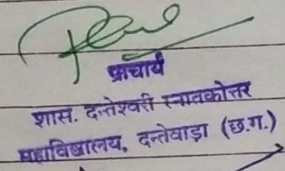 प्राचार्य
शास. दन्तेश्वरी स्नातकोत्तर
महाविद्यालय, दन्तेवाड़ा (छ.ग.)